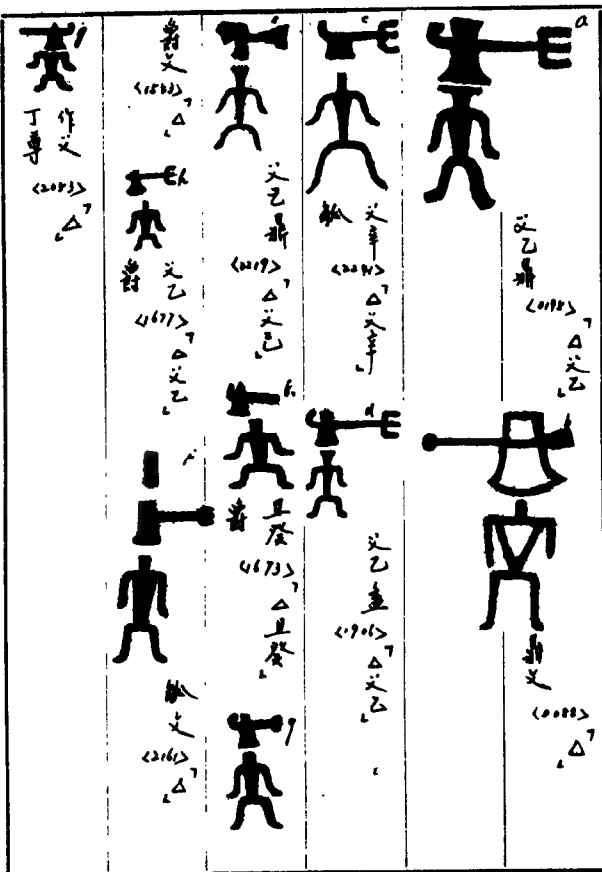 a
父乙鼎
<0198>
「△父乙」
b
鼎文
<0088>
「△」
c
父辛
觚
<2241>
「△父辛」
d
父乙盉
<1906>
「△父乙」
e
父乙鼎
<0219>
「△父己」
f
且癸
爵
<1673>
「△且癸」
g
爵文
<1563>
「△」
h
父乙
爵
<1677>
「△父乙」
i
觚文
<2161>
「△」
j
作父
丁尊
<2083>
「△」